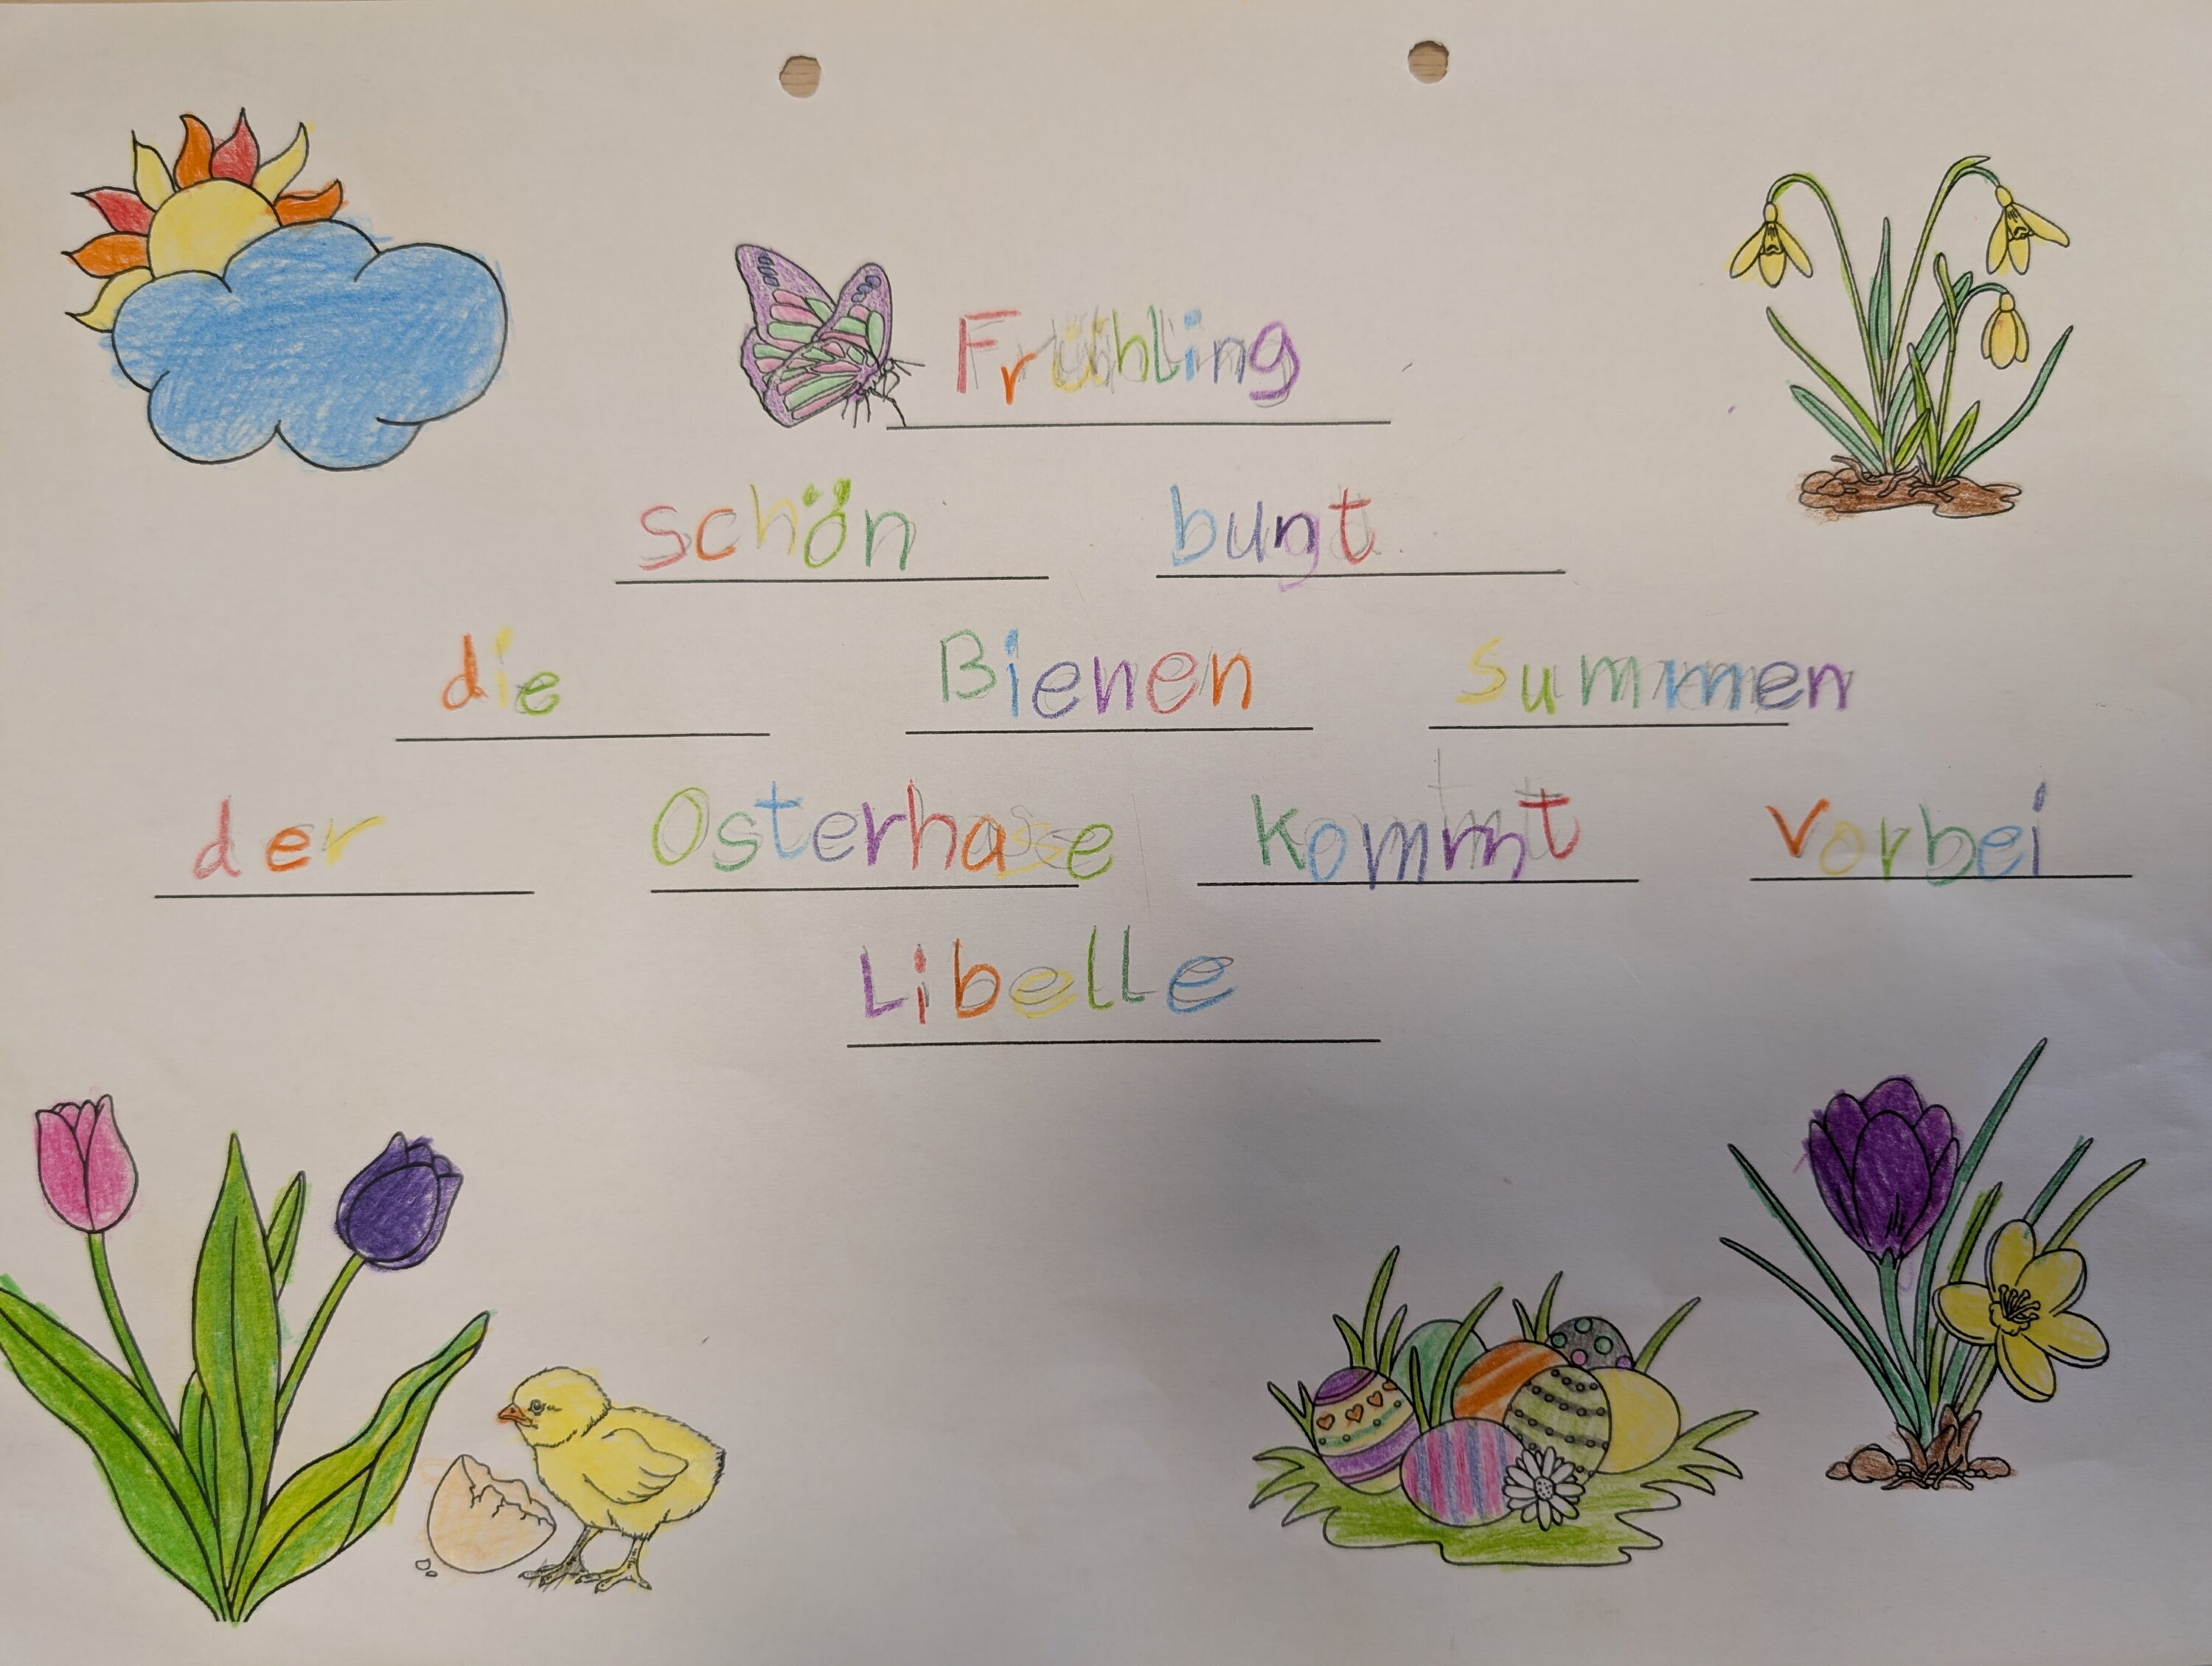 Frühling
schön bunt
die Bienen summen
der Osterhase kommt vorbei
Libelle